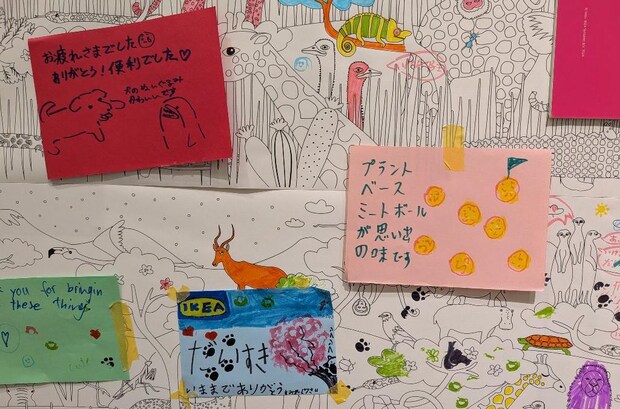 お疲れさまでした
ありがとう!便利でした♡
犬のぬいぐるみ
かわいいです
プラント
ベース
ミートボール
が思い出
の味です
you for bringin
these things
IKEA
だいすき
いままでありがとう